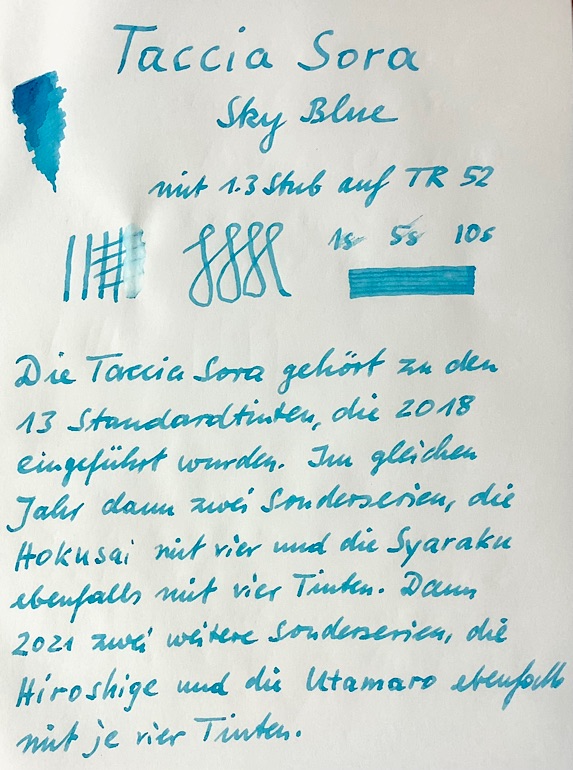 Taccia Sora
Sky Blue
mit 1.3 Stub auf TR 52
1s 5s 10s
Die Taccia Sora gehört zu den
13 Standardtinten, die 2018
eingeführt wurden. Im gleichen
Jahr dann zwei Sonderserien, die
Hokusai mit vier und die Syaraku
ebenfalls mit vier Tinten. Dann
2021 zwei weitere Sonderserien, die
Hiroshige und die Utamaro ebenfalls
mit je vier Tinten.